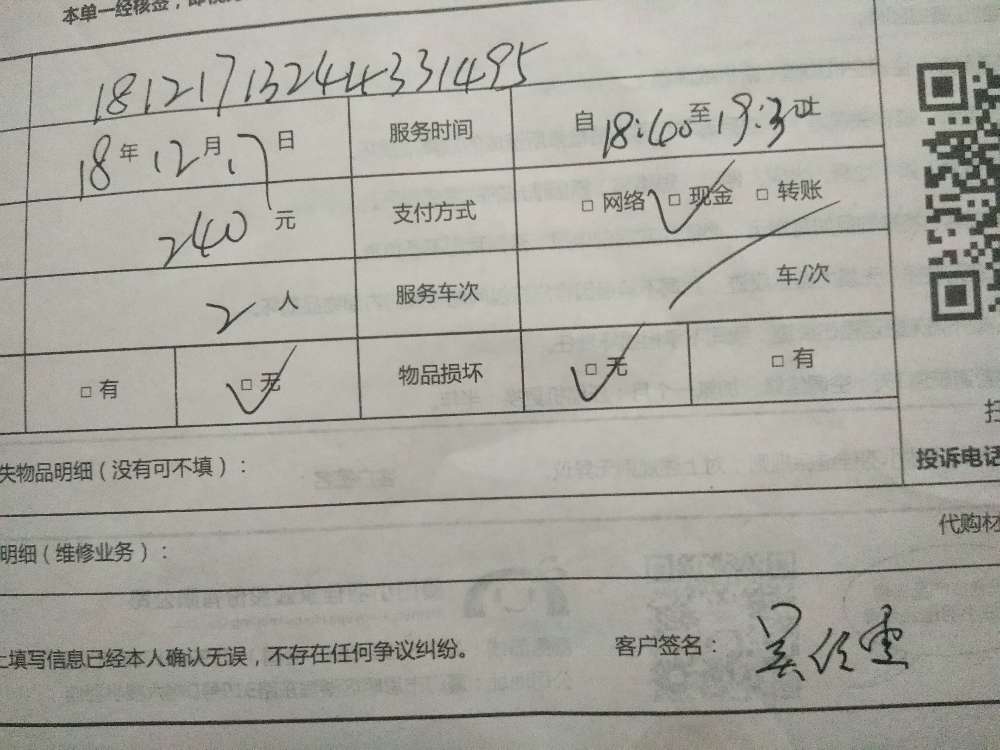 本单一经核签，即视
181217132444331495
18年12月17日 服务时间 自18:40至19:30止
240元 支付方式 □ 网络 □ 现金 □ 转账
2人 服务车次 车/次
□ 有 □ 无 物品损坏 □ 无 □ 有
失物品明细（没有可不填）：
投诉电话
代购材
明细（维修业务）：
上填写信息已经本人确认无误，不存在任何争议纠纷。 客户签名：